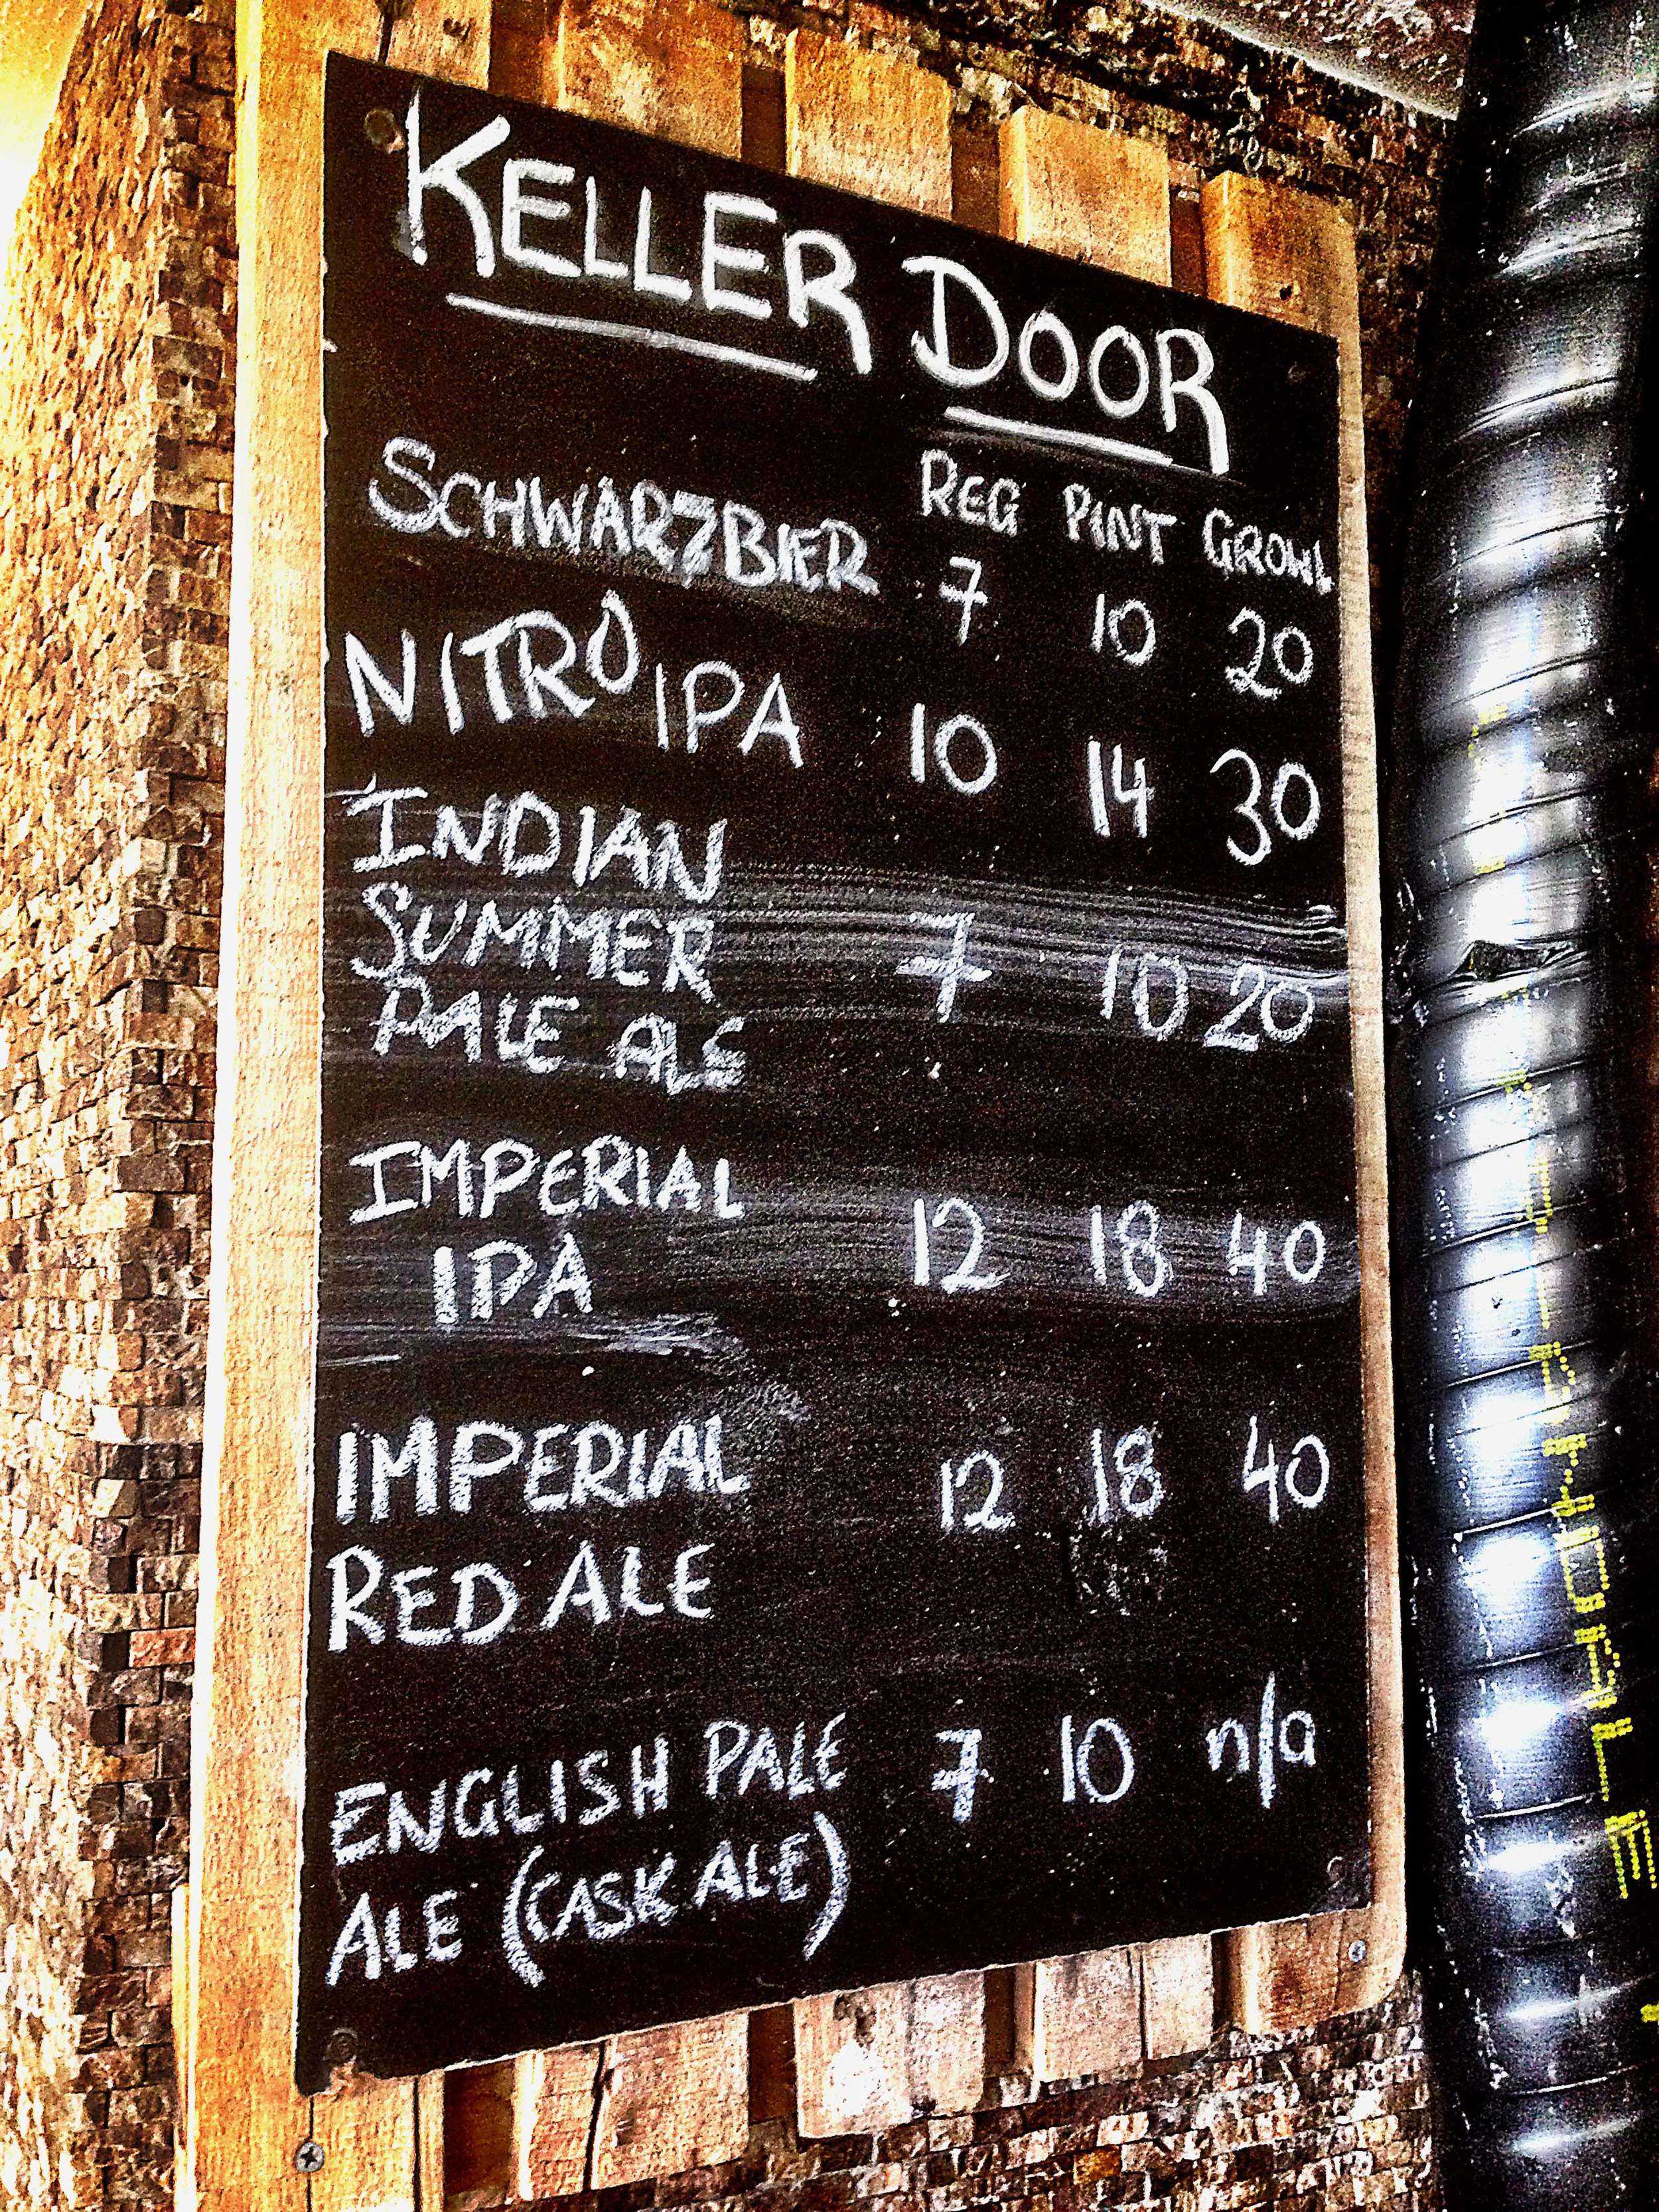 KELLER DOOR
REG PINT GROWL
SCHWARZBIER 7 10 20
NITRO IPA 10 14 30
INDIAN
SUMMER 7 10 20
PALE ALE
IMPERIAL
IPA 12 18 40
IMPERIAL 12 18 40
RED ALE
ENGLISH PALE 7 10 n/a
ALE (CASK ALE)